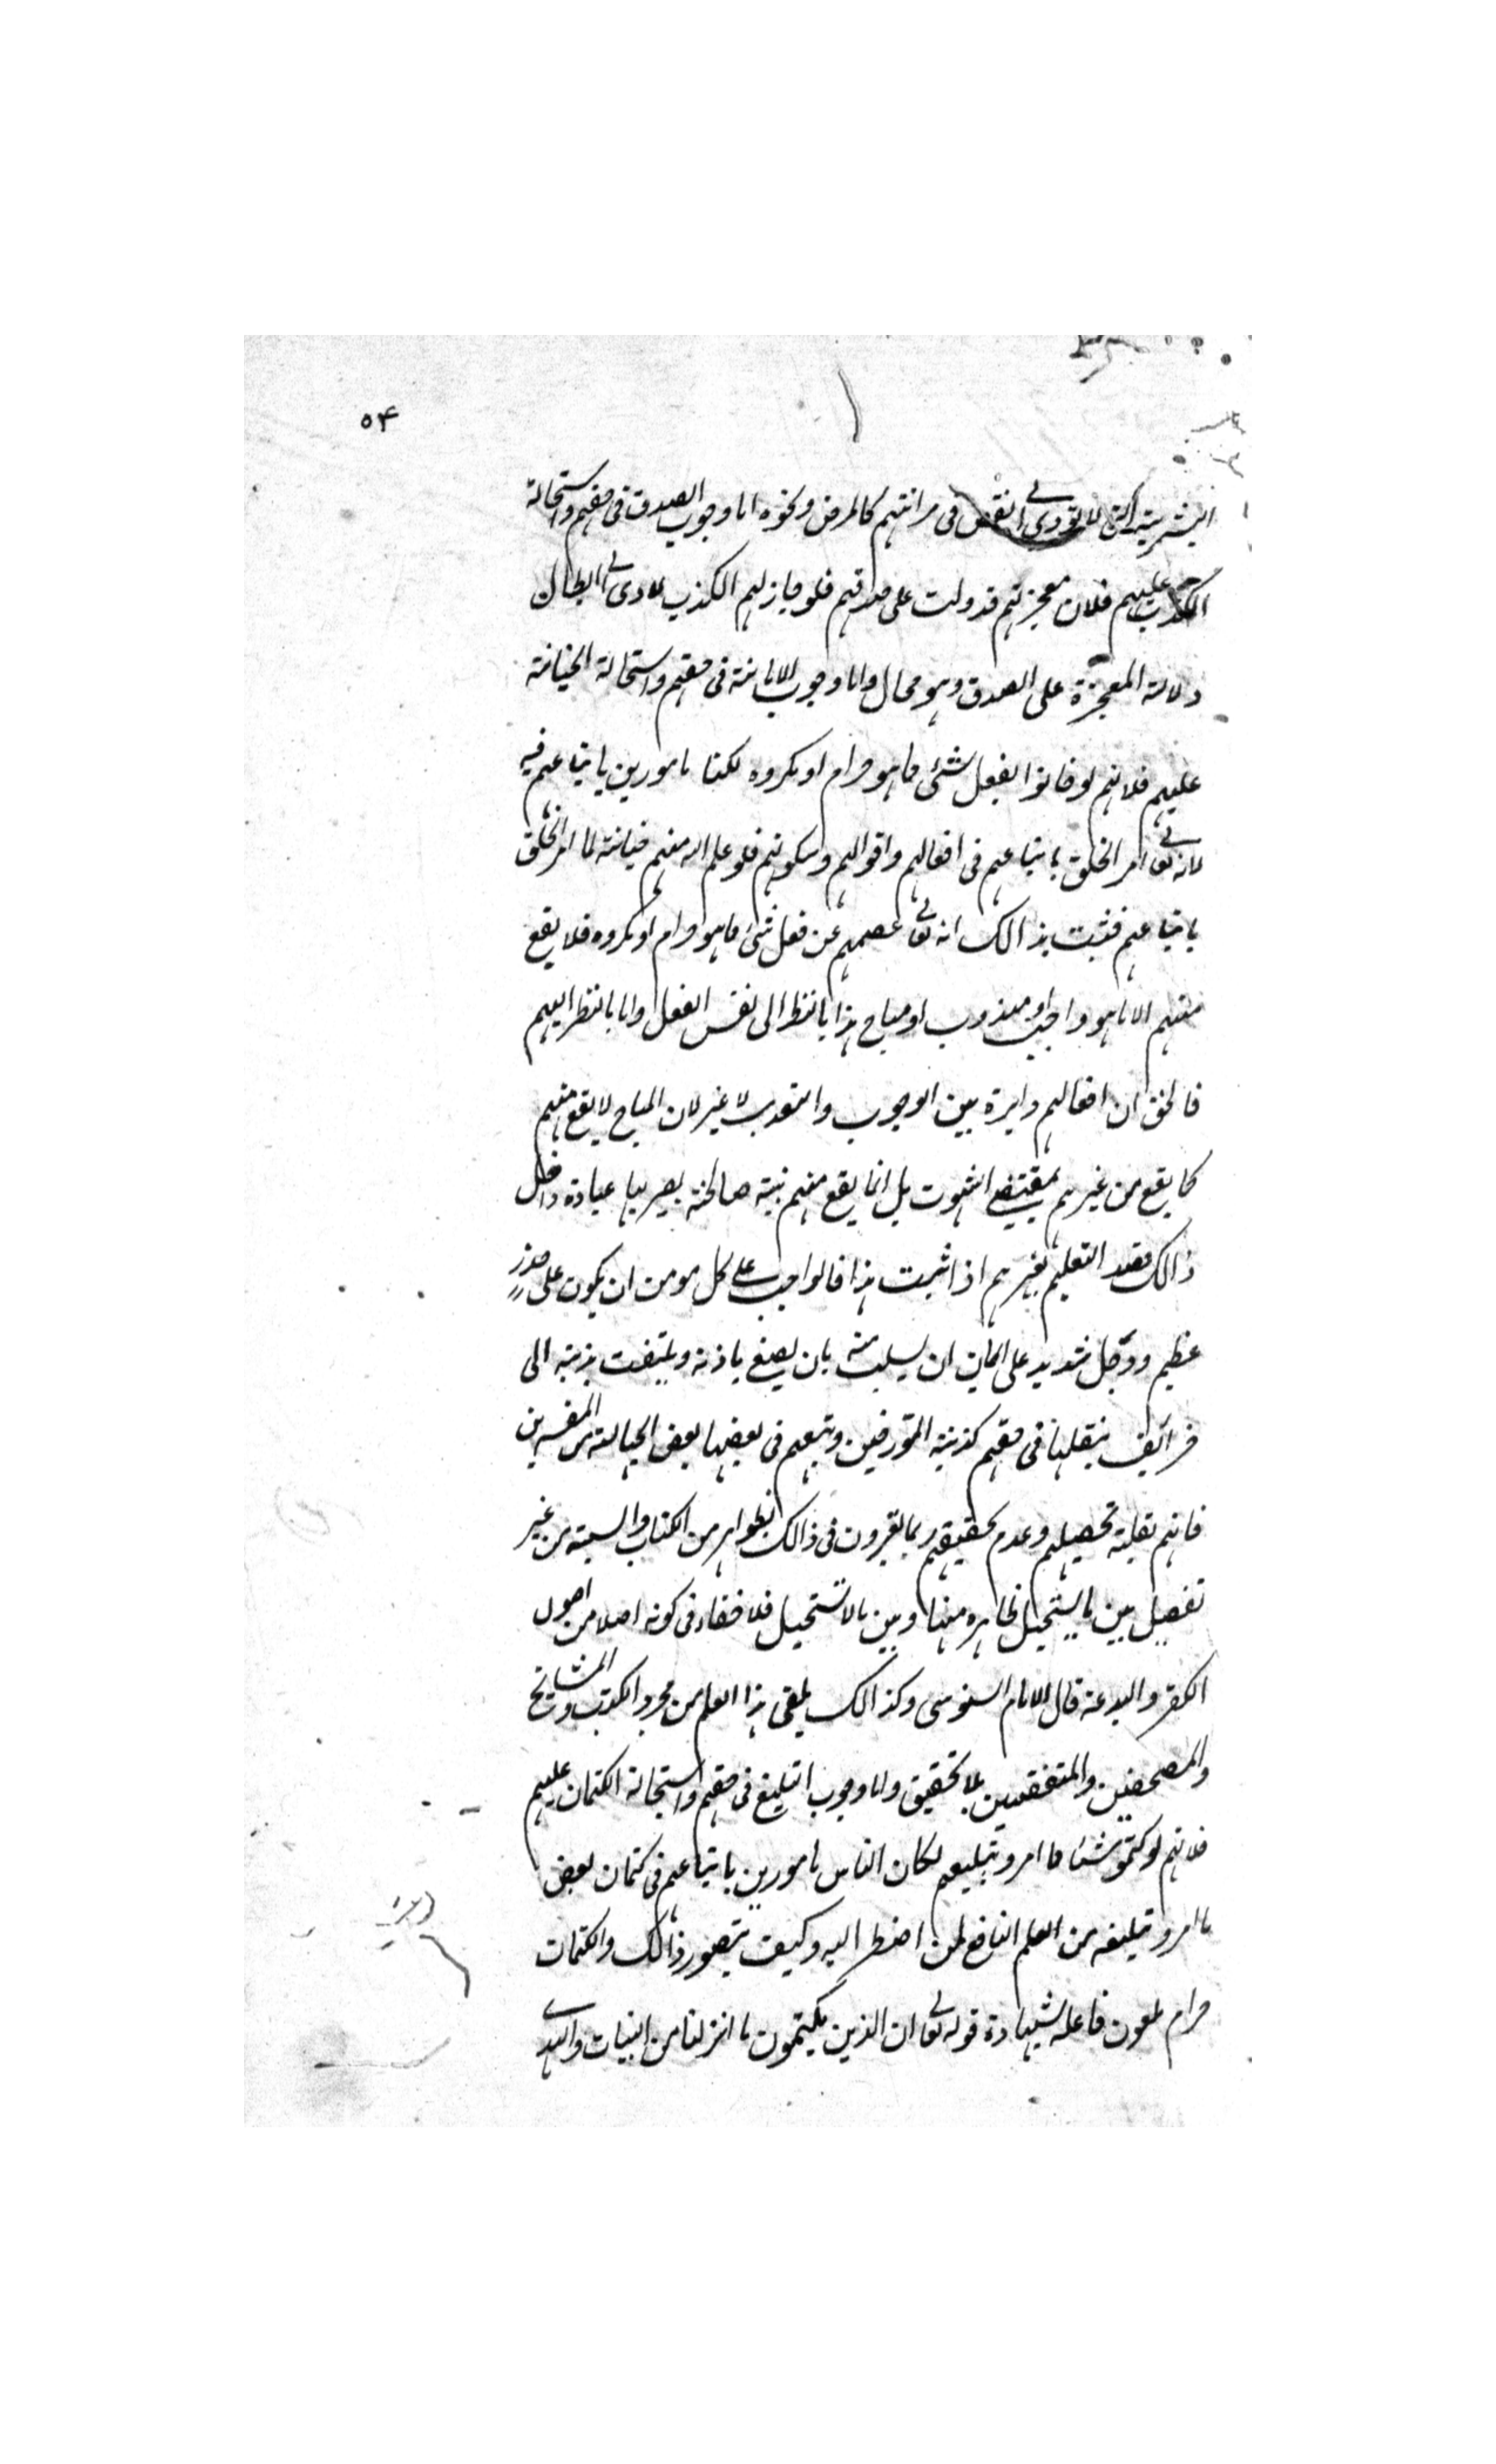 ٥۴
البشرية التى لا تودى الى نقص فى مراتبهم كالمرض ونحوه اما وجوب الصدق فى حقهم واستحالة
الكذب عليهم فلان معجزتهم قد دلت على صدقهم فلو جاز لهم الكذب لادى الى ابطال
دلالة المعجزة على الصدق وهو محال واما وجوب الامانة فى حقهم واستحالة الخيانة
عليهم فلانهم لو خانوا بفعل شئ مما هو حرام او مكروه لكنا مامورين باتباعهم فيه
لانه تعالى امر الخلق باتباعهم فى افعالهم واقوالهم وسكوتهم فلو علم الله منهم خيانة لما امر الخلق
باتباعهم فثبت بذالك انه تعالى عصمهم عن فعل شئ مما هو حرام او مكروه فلا يقع
منهم الا ما هو واجب او مندوب او مباح هذا بالنظر الى نفس الفعل واما بالنظر اليهم
فالحق ان افعالهم دايرة بين الوجوب والندب لا غير لان المباح لا يقع منهم
كما يقع من غيرهم بمقتضى الشهوت بل انما يقع منهم بنية صالحة يصير بها عبادة واقل
ذالك قصد التعليم لغيرهم اذا ثبت هذا فالواجب على كل مومن ان يكون على حذر
عظيم ووجل شديد على ايمانه ان يسلب منه بان يصغ باذنه ويلتفت بذهنه الى
خرائف ينقلها فى حقهم كذبة المؤرخين وتبعهم فى بعضها بعض الجهالة من المفسرين
فانهم لقلة تحصيلهم وعدم تحقيقهم ربما يغيرون فى ذالك بظواهر من الكتاب والسنة من غير
تفصيل بين ما يستحيل ظاهره منها وبين ما لا تستحيل فلا خفاء فى كونه اصلا من اصول
الكفر والبدعة قال الامام السنوسى وكذالك يلقى هذا العلم من مجرد الكتب والمشايخ
والمصحفين والمتفقهين بلا تحقيق واما وجوب التبليغ فى حقهم واستحالة الكتمان عليهم
فلانهم لو كتموا شئا مما امرو بتبليغهم لكان الناس مامورين باتباعهم فى كتمان بعض
ما امرو تبليغه من العلم النافع لمن اضطر اليه وكيف يتصور ذالك والكتمان
حرام ملعون فاعله بشهادة قوله تعالى ان الذين يكتمون ما انزلنا من البينات والهدى